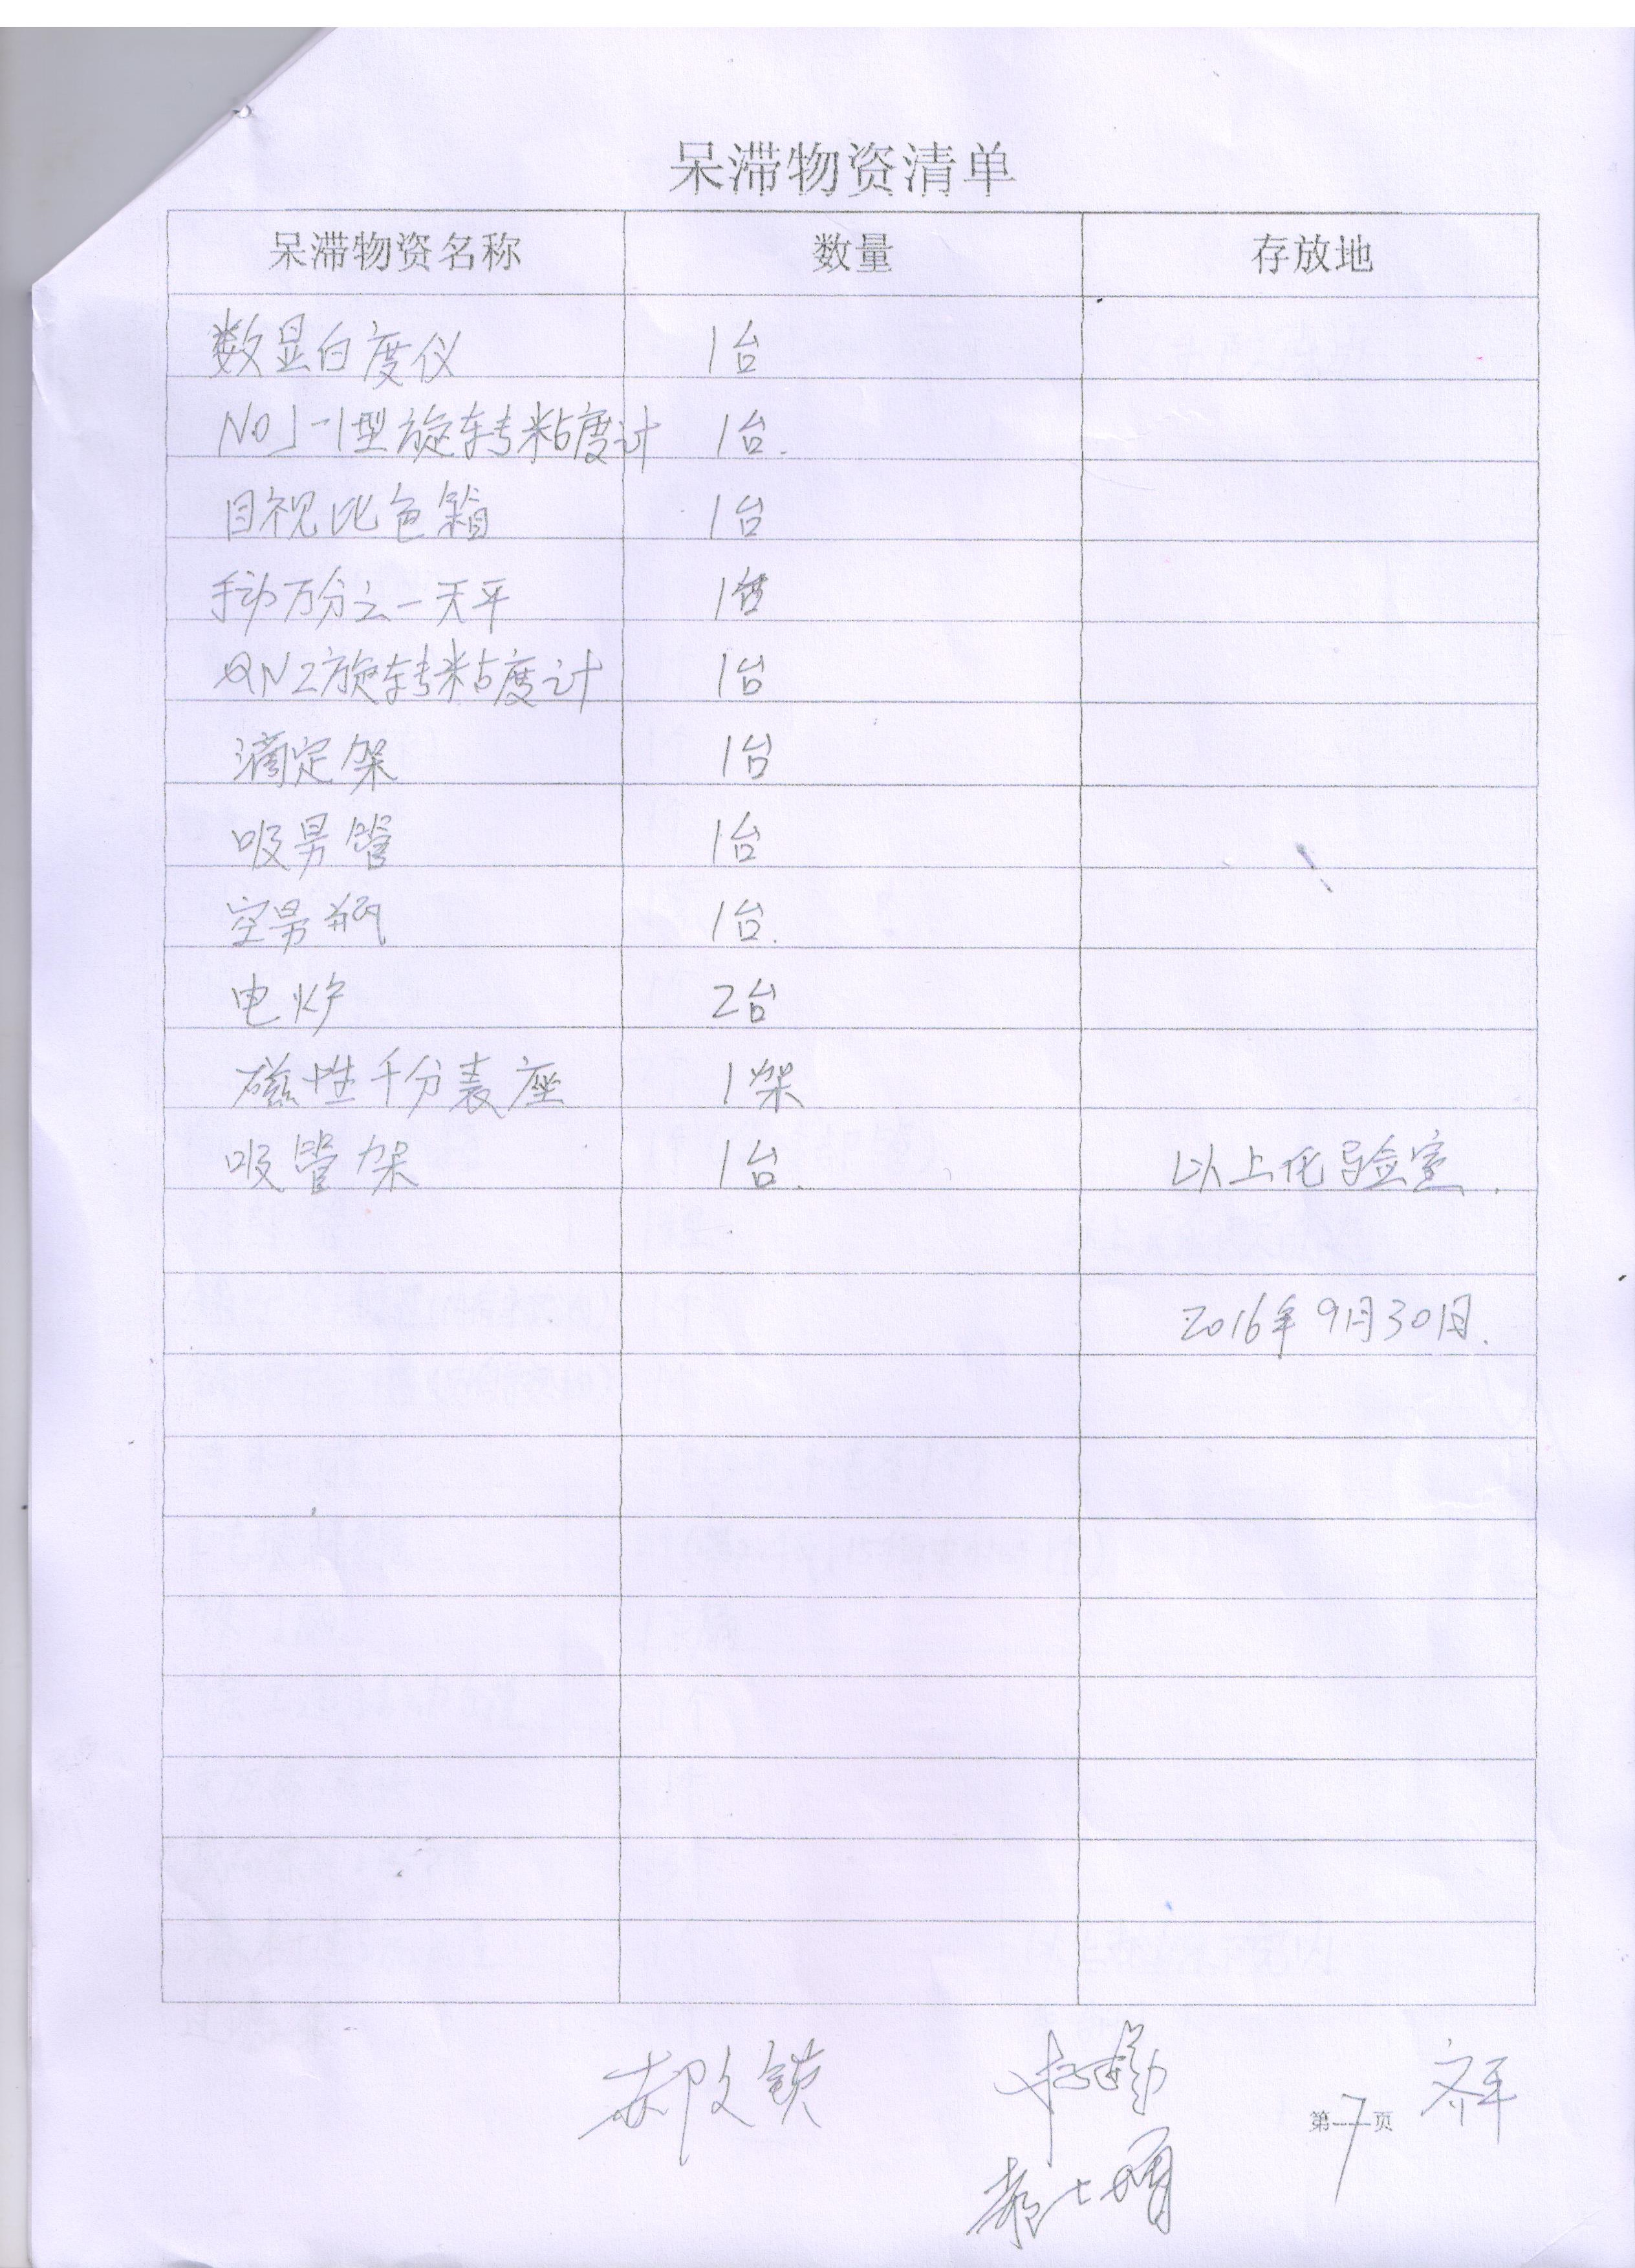 呆滞物资清单
呆滞物资名称 数量 存放地
数显白度仪 1台
NOJ-1型旋转粘度计 1台.
目视比色箱 1台
手动万分之一天平 1台
QNZ旋转粘度计 1台
滴定架 1台
吸男管 1台
空男瓶 1台.
电炉 2台
磁性千分表座 1架
吸管架 1台. 以上化验室.
2016年9月30日.
郝文锁 齐平
第7页